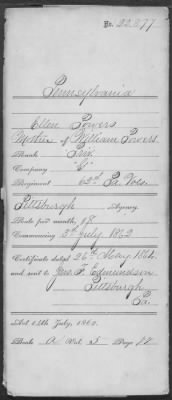 No. 22,877
Pennsylvania
Ellen Powers
Mother of William Powers
Rank Priv.
Company "C"
Regiment 62nd Pa. Vols.
Pittsburgh Agency
Rate per month, $8
Commencing 2d July, 1862
Certificate dated 26th May 1864
and sent to Jas. P. Edmundson
Pittsburgh
Pa.
Act 14th July, 1862.
Book A Vol. 5 Page 88